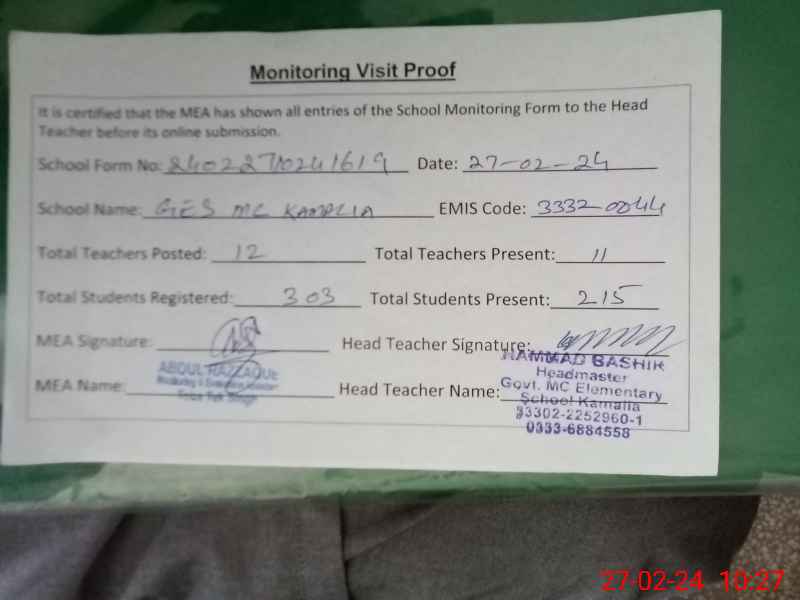 Monitoring Visit Proof
It is certified that the MEA has shown all entries of the School Monitoring Form to the Head
Teacher before its online submission.
School Form No: Date: 27-02-24
School Name: GES MC KAMALIA EMIS Code: 3332-0044
Total Teachers Posted: 12 Total Teachers Present: 11
Total Students Registered: 303 Total Students Present: 215
MEA Signature: Head Teacher Signature:
ABDUL RAZZAQUE HAMMAD BASHIR
Headmaster
MEA Name: Head Teacher Name: Govt. MC Elementary
School Kamalia
33302-2252960-1
0333-6884558
27-02-24 10:27